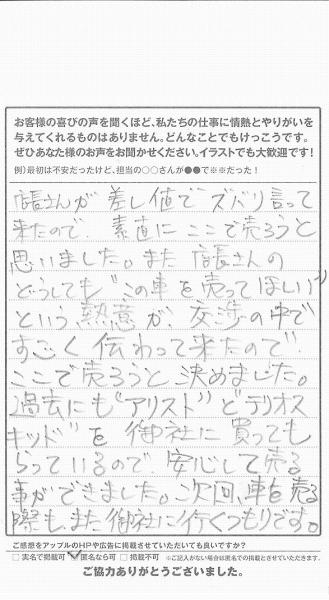 お客様の喜びの声を聞くほど、私たちの仕事に情熱とやりがいを
与えてくれるものはありません。どんなことでもけっこうです。
ぜひあなた様のお声をお聞かせください。イラストでも大歓迎です!
例)最初は不安だったけど、担当の○○さんが●●で※※だった!
店長さんが 差し値で ズバリ言って
来たので、素直に ここで売ろうと
思いました。また 店長さんの
どうしても"この車を売ってほしい"
という 熱意が、交渉の中で
すごく 伝わって来たので
ここで売ろうと 決めました。
過去にも"アリスト"と"テリオス
キッド"を 御社に 買っても
らっているので、安心して売る
事ができました。次回、車を売る
際も、また御社に行くつもりです。
ご感想をアップルのHPや広告に掲載させていただいても良いですか?
□実名で掲載可 ☑匿名なら可 □掲載不可 ※ご記入がない場合は匿名での掲載とさせていただきます。
ご協力ありがとうございました。